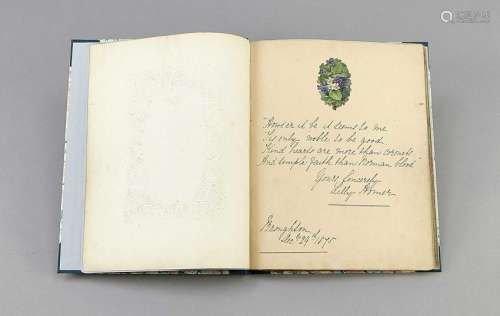 "Howe'er it be it seems to me
'Tis only noble to be good
Kind hearts are more than coronets
And simple faith than Norman blood"
Yours Sincerely
Lilly
Broughton
Dec 29th 1875